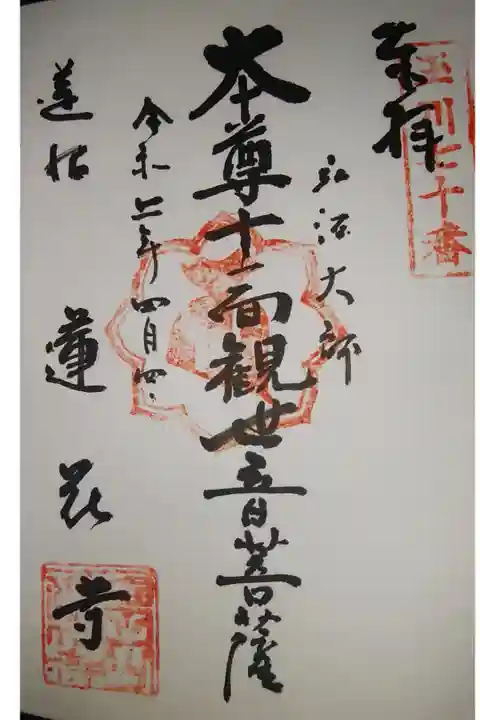 玉川七十番
奉拝
弘法大師
本尊十一面観世音菩薩
令和二年四月四日
蓮花寺